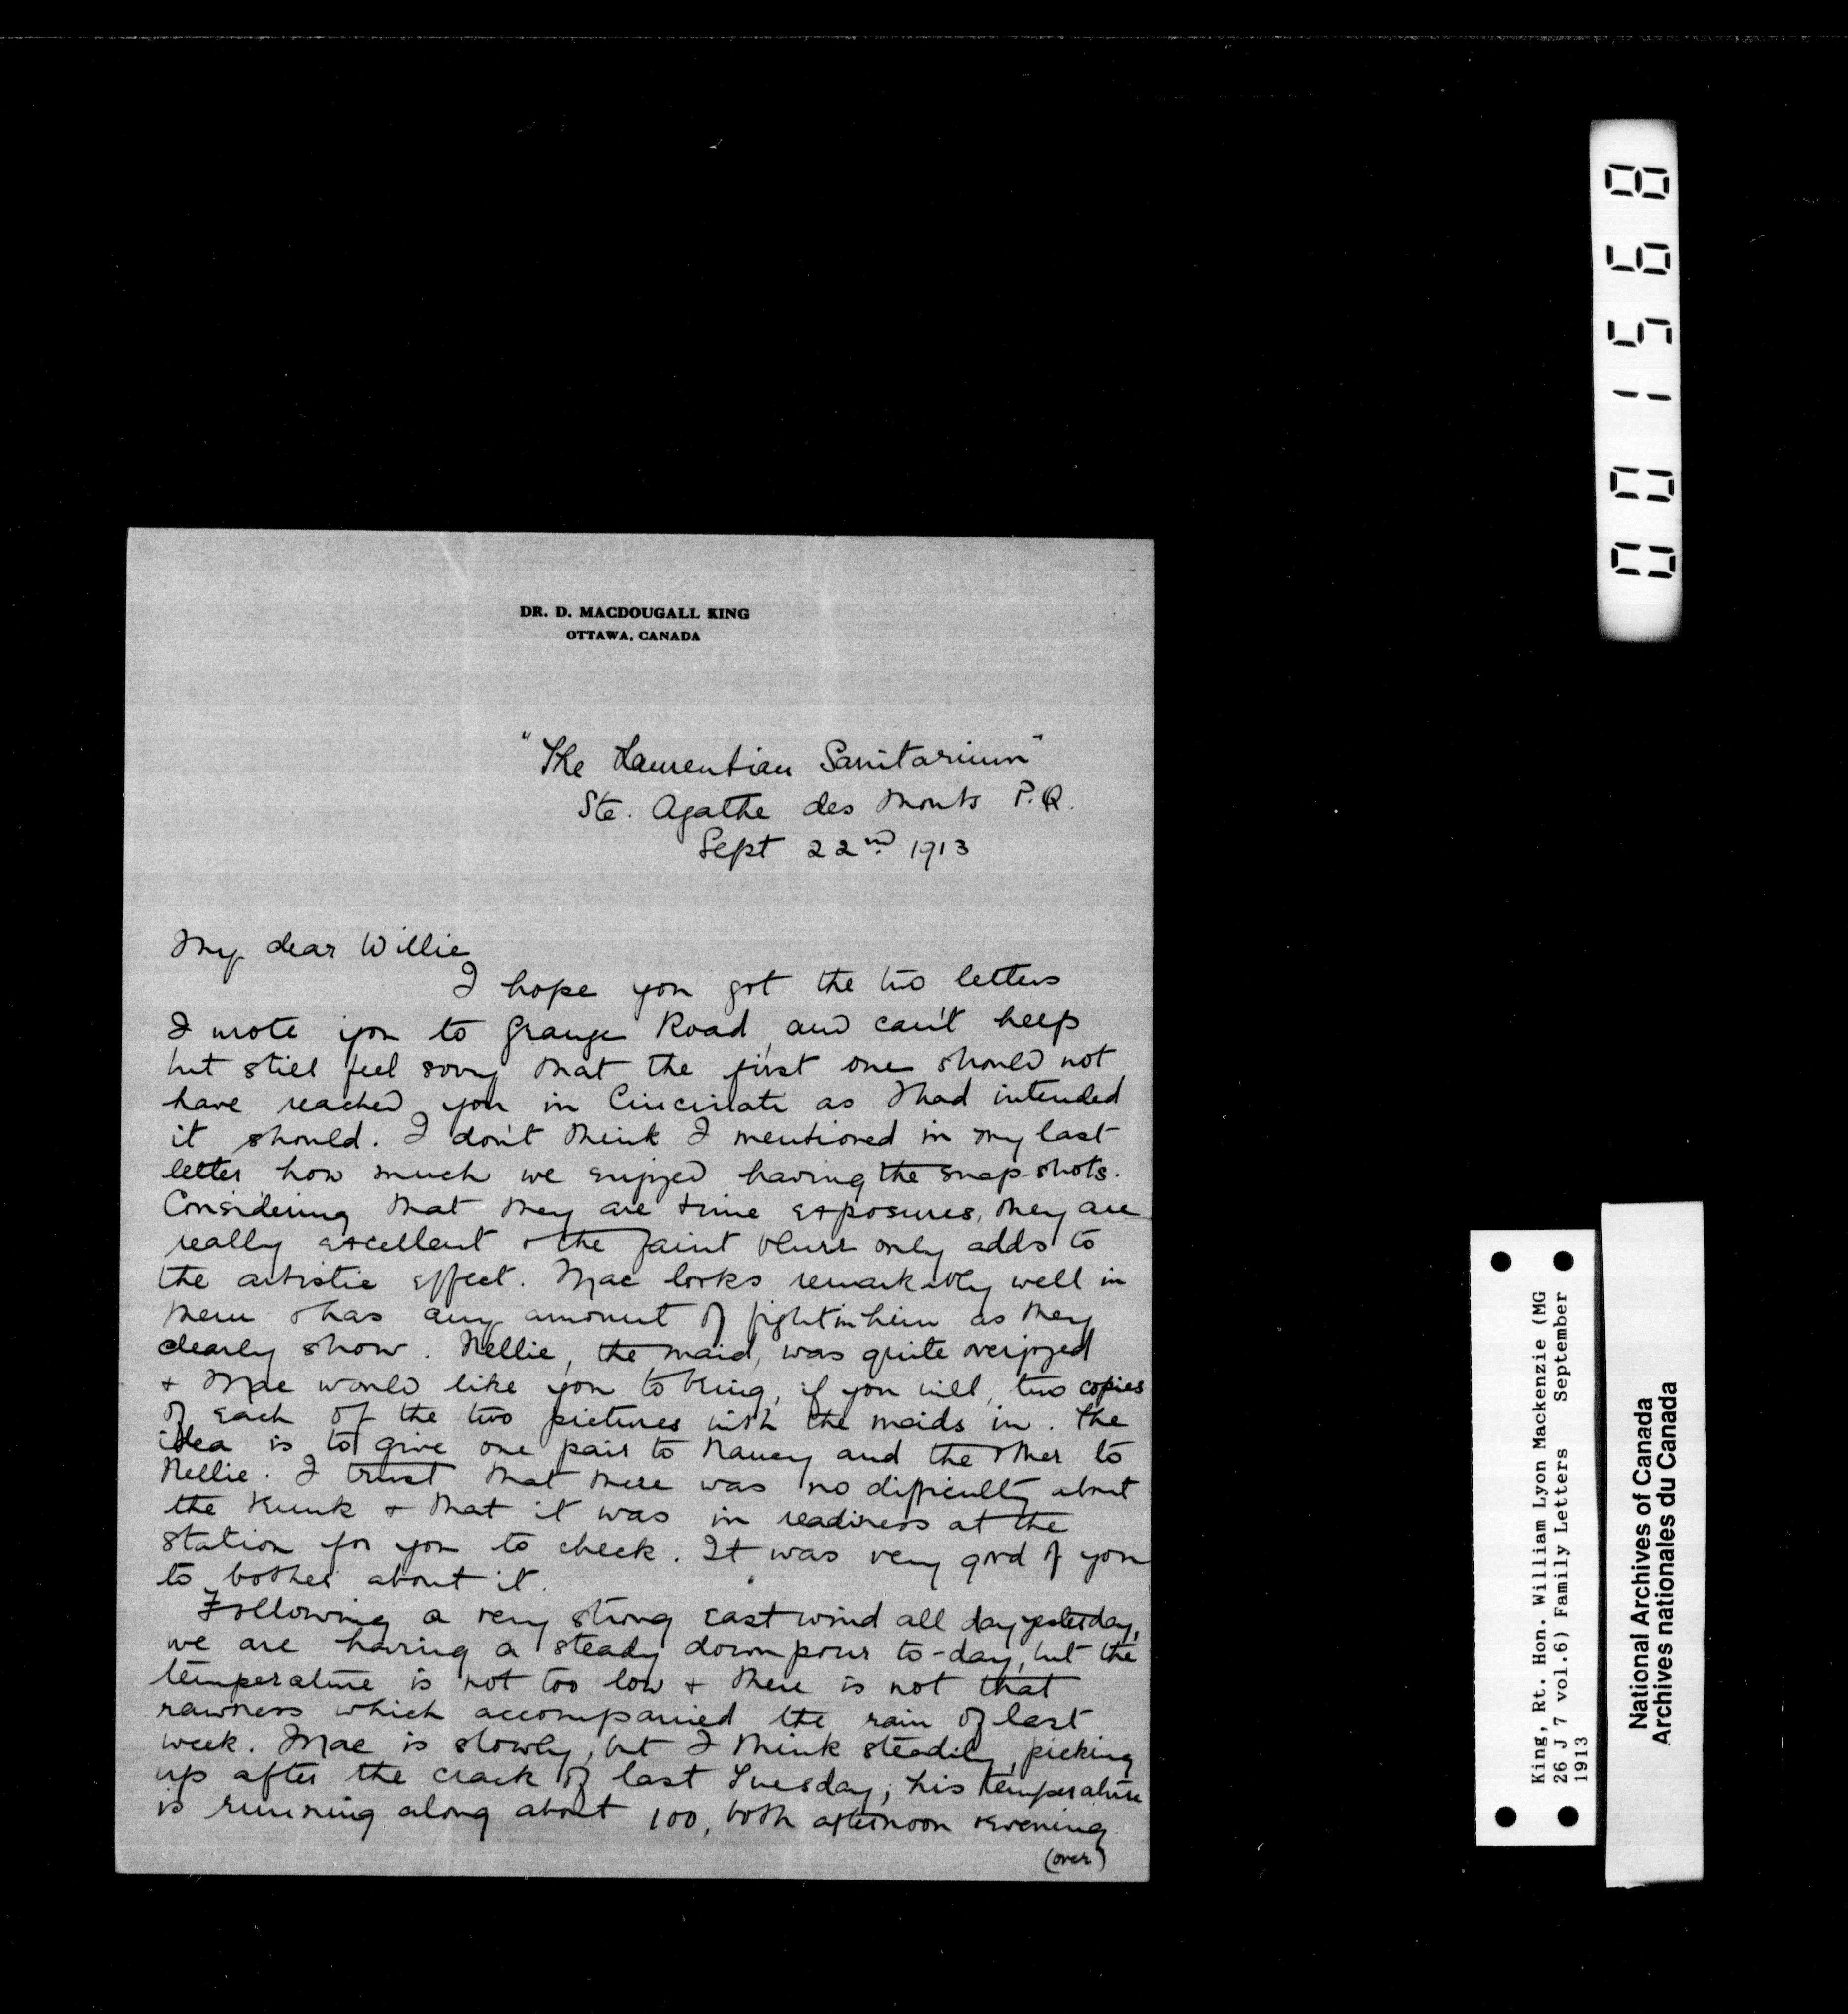 DR. D. MACDOUGALL KING
OTTAWA, CANADA
"The Laurentian Sanitarium"
Ste. Agathe des Monts P.Q.
Sept 22nd 1913
My dear Willie
I hope you got the two letters
I wrote you to Grange Road, and can't help
but still feel sorry that the first one should not
have reached you in Cincinati as I had intended
it should. I don't think I mentioned in my last
letter how much we enjoyed having the snap-shots.
Considering that they are time exposures, they are
really excellent & the faint blurr only adds to
the artistic effect. Mac looks remarkably well in
them & has any amount of fight in him as they
clearly show. Nellie, the maid, was quite overjoyed
& Mac would like you to bring, if you will, two copies
of each of the two pictures with the maids in. The
idea is to give one pair to Nancy and the other to
Nellie. I trust that there was no difficulty about
the trunk & that it was in readiness at the
station for you to check. It was very good of you
to bother about it.
Following a very strong east wind all day yesterday,
we are having a steady downpour to-day, but the
temperature is not too low & there is not that
rawness which accompanied the rain of last
week. Mac is slowly, but I think steadily, picking
up after the crack of last Tuesday; his temperature
is running along about 100, both afternoon & evening
(over)
001568
King, Rt. Hon. William Lyon Mackenzie (MG
26 J 7 vol.6) Family Letters September
1913
National Archives of Canada
Archives nationales du Canada